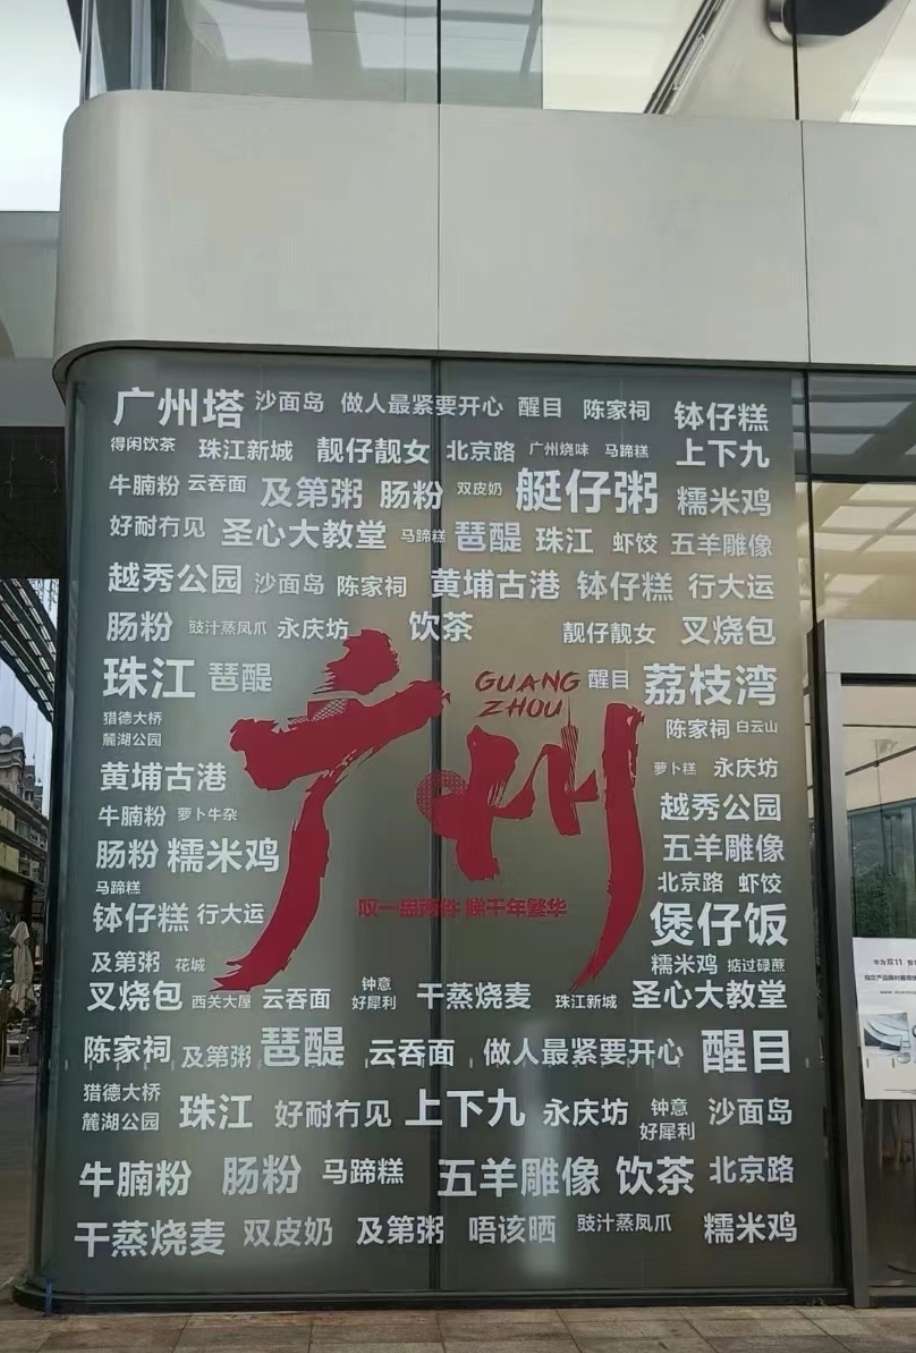 广州塔 沙面岛 做人最紧要开心 醒目 陈家祠 钵仔糕
得闲饮茶 珠江新城 靓仔靓女 北京路 广州烧味 马蹄糕 上下九
牛腩粉 云吞面 及第粥 肠粉 双皮奶 艇仔粥 糯米鸡
好耐冇见 圣心大教堂 马蹄糕 琶醍 珠江 虾饺 五羊雕像
越秀公园 沙面岛 陈家祠 黄埔古港 钵仔糕 行大运
肠粉 豉汁蒸凤爪 永庆坊 饮茶 靓仔靓女 叉烧包
珠江 琶醍 GUANG ZHOU 醒目 荔枝湾
猎德大桥 陈家祠 白云山
麓湖公园
广州
黄埔古港 萝卜糕 永庆坊
牛腩粉 萝卜牛杂 越秀公园
肠粉 糯米鸡 五羊雕像
马蹄糕 北京路 虾饺
钵仔糕 行大运 叹一盅两件 睇千年繁华 煲仔饭
及第粥 花城 糯米鸡 掂过碌蔗
叉烧包 西关大屋 云吞面 钟意 好犀利 干蒸烧麦 珠江新城 圣心大教堂
陈家祠 及第粥 琶醍 云吞面 做人最紧要开心 醒目
猎德大桥
麓湖公园 珠江 好耐冇见 上下九 永庆坊 钟意 好犀利 沙面岛
牛腩粉 肠粉 马蹄糕 五羊雕像 饮茶 北京路
干蒸烧麦 双皮奶 及第粥 唔该晒 豉汁蒸凤爪 糯米鸡
华为双11